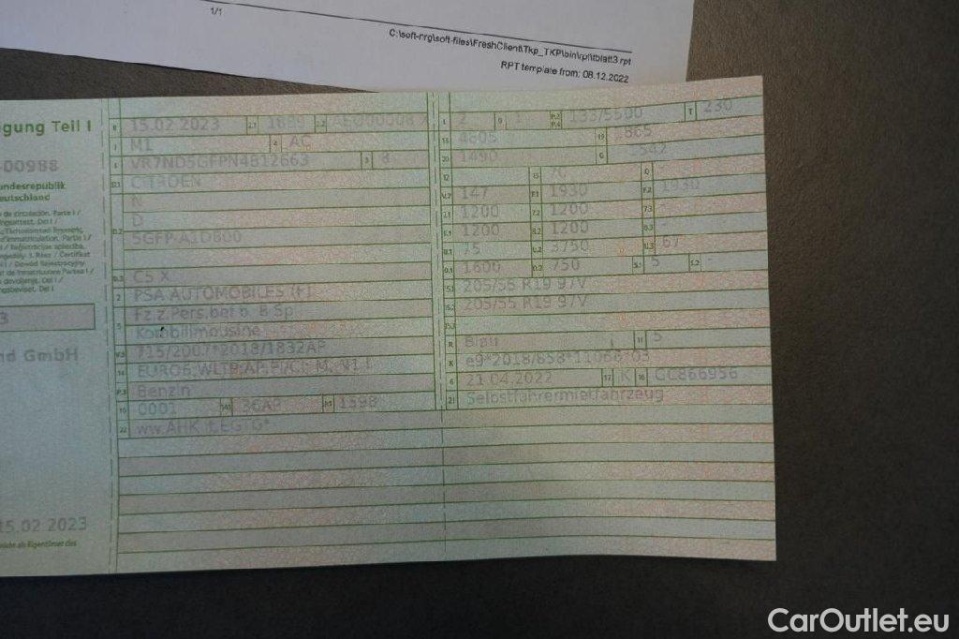 1/1
C:\soft-nrg\soft-files\FreshClient\Tkp_TKP\bin\rpt\tblatt3.rpt
RPT template from: 08.12.2022
gung Teil I
-00988
undesrepublik
eutschland
nd GmbH
15.02 2023
B 15.02 2023 2.1 1889 2.2
J M1 4 AC
E VR7ND5GFPN4B12663 3 8
D.1 CITROEN
N
D
D.2 5GFP-A1D800
D.3 C5 X
2 PSA AUTOMOBILES (F)
5 Fz.z.Pers.bef.b. 8 Spl
Kombilimousine
V.9 715/2007*2018/1832AP
14 EURO6;WLTP;AP;PI/CI; M, N1 I
P.3 Benzin
10 0001 14.1 36AP P.1 1598
22 ww.AHK LEGTG*
L 2 9 1 P.2 P.4 133/5500 T 230
18 4805 19 1865
20 1490 G 1542
12 - 13 70 Q -
V.7 147 F.1 1930 F.2 1930
7.1 1200 7.2 1200 7.3 -
8.1 1200 8.2 1200 8.3 -
U.1 75 U.2 3750 U.3 67
O.1 1600 O.2 750 S.1 5 S.2 -
15.1 205/55 R19 97V
15.2 205/55 R19 97V
15.3 -
R Blau 11 5
K e9*2018/858*11068*03
6 21.04.2022 17 K 16 CC866956
21 Selbstfahrermietfahrzeug
CarOutlet.eu